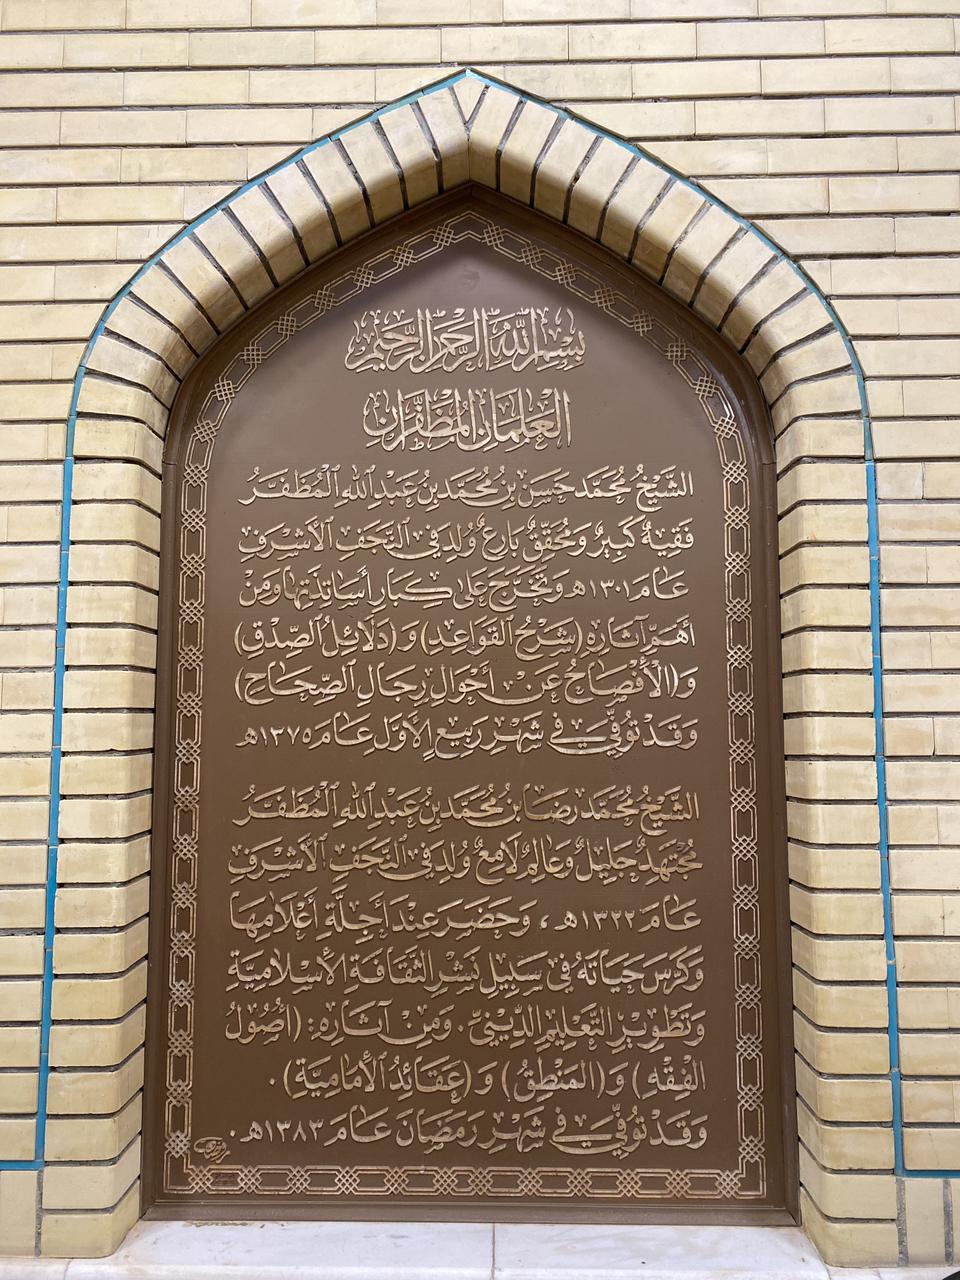 بِسْمِ اللهِ الرَّحْمٰنِ الرَّحِيمِ
العَلَمَانِ المُظَفَّرَانِ
الشَّيْخُ مُحَمَّد حَسَن بِنْ مُحَمَّدِ بِنُ عَبدِ اللهِ المُظَفَّرُ
فَقِيهٌ كَبِيرٌ وَمُحَقِّقٌ بَارِعٌ وُلِدَ فِي النَّجَفِ الأَشْرَفِ
عَامَ ١٣٠١هـ وَتَخَرَّجَ عَلَى كِبَارِ أَسَاتِذَتِهَا وَمِنْ
أَهَمِّ آثَارِهِ (شَرْحُ القَوَاعِدِ) وَ (دَلَائِلُ الصِّدْقِ)
وَ(الأَفْصَاحُ عَنْ أَحْوَالِ رِجَالِ الصِّحَاحِ)
وَقَد تُوُفِّيَ فِي شَهْرِ رَبِيعِ الأَوَّلِ عَامَ ١٣٧٥هـ
الشَّيْخُ مُحَمَّد رِضَا بنُ مُحَمَّدِ بِنُ عَبدِ اللهِ المُظَفَّرُ
مُجْتَهِدٌ جَلِيلٌ وَعَالِمٌ لَامِعٌ وُلِدَ فِي النَّجَفِ الأَشْرَفِ
عَامَ ١٣٢٢هـ ، وَحَضَرَ عِندَ أَجِلَّةِ أَعْلَامِهَا
وَكَرَّسَ حَيَاتَهُ فِي سَبِيلِ نَشْرِ الثَّقَافَةِ الأَسْلَامِيَّةِ
وَتَطْوِيرِ التَّعْلِيمِ الدِّينِيِّ . وَمِنْ آثَارِهِ: (أُصُولُ
الفِقْهِ) وَ(المَنْطِقُ) وَ (عَقَائِدُ الأَمَامِيَّةِ) .
وَقَد تُوُفِّيَ فِي شَهْرِ رَمَضَانَ عَامَ ١٣٨٣هـ .